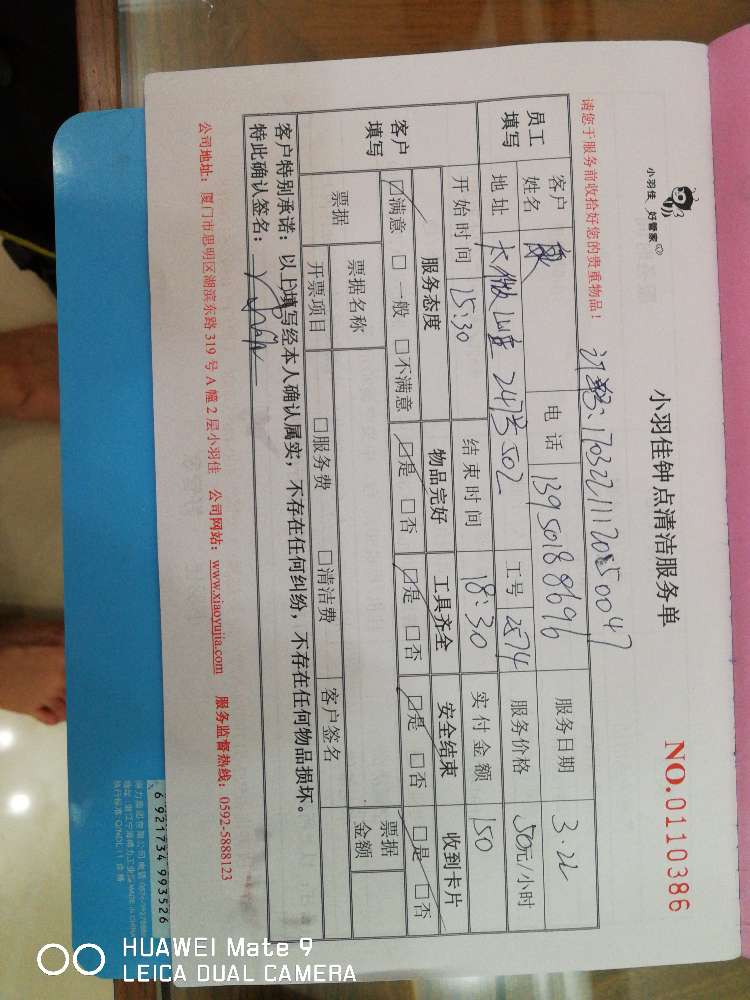 小羽佳 好管家
小羽佳钟点清洁服务单
NO.0110386
请您于服务前收拾好您的贵重物品！
员工填写
客户姓名
电话 13950188696
服务日期 3.22
地址 247号502
工号 2574
服务价格 50元/小时
开始时间 15:30
结束时间 18:30
实付金额 150
客户填写
服务态度 物品完好 工具齐全 安全结束 收到卡片
☑满意 □一般 □不满意 ☑是 □否 ☑是 □否 ☑是 □否 □是 □否
票据 票据名称 票据金额
开票项目 □服务费 □清洁费 客户签名
客户特别承诺：以上填写经本人确认属实，不存在任何纠纷，不存在任何物品损坏。
特此确认签名：
公司地址：厦门市思明区湖滨东路 319 号 A 幢 2 层小羽佳 公司网站：www.xiaoyujia.com 服务监督热线：0592-5888123
6 921734 993526
HUAWEI Mate 9
LEICA DUAL CAMERA